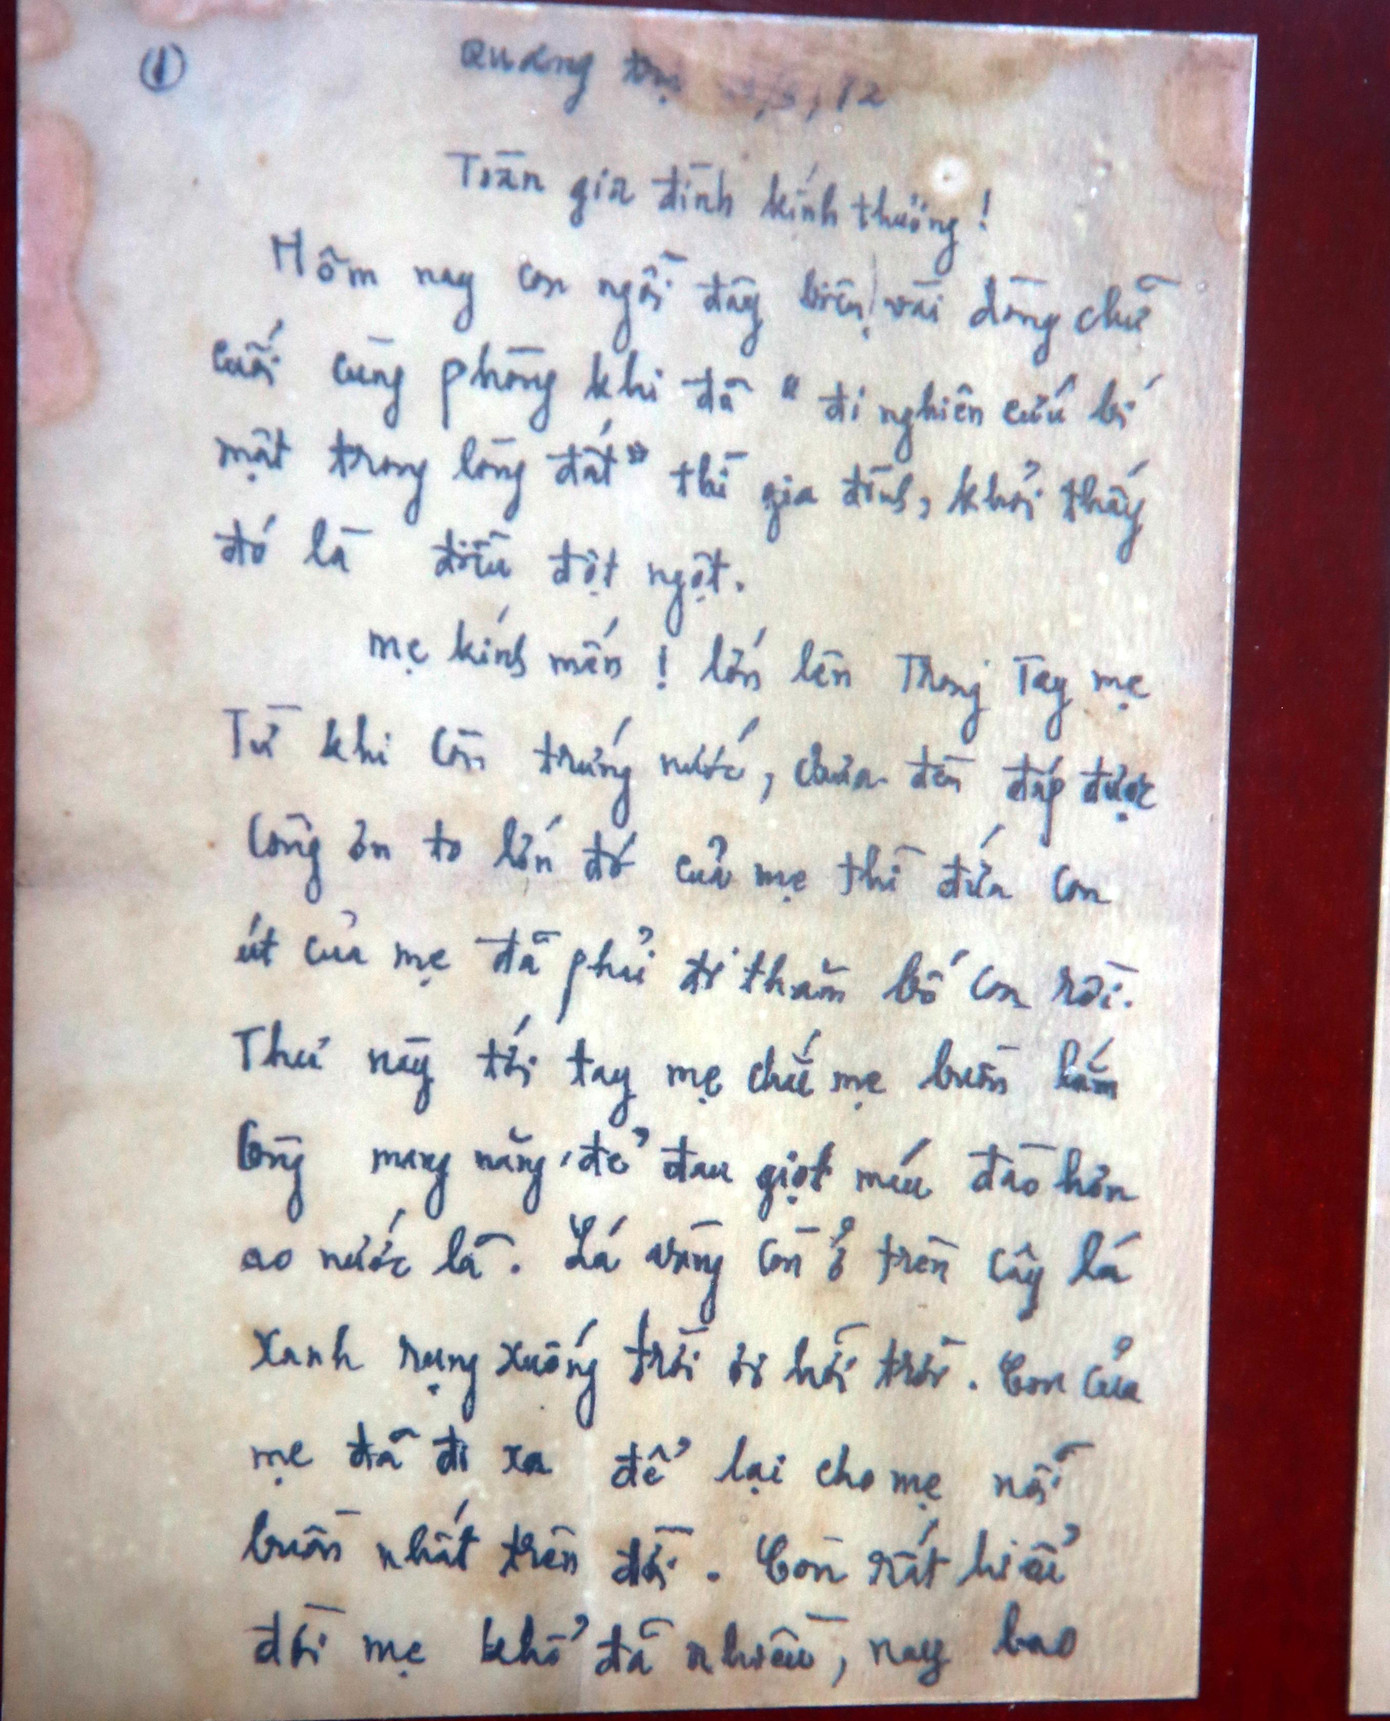 ①
Quảng trị
Toàn gia đình kính thương!
Hôm nay con ngồi đây biên vài dòng chữ
cuối cùng phòng khi đã "đi nghiên cứu bí
mật trong lòng đất" thì gia đình, khỏi thấy
đó là điều đột ngột.
mẹ kính mến! lớn lên Trong Tay mẹ
Từ khi còn trứng nước, chưa đền đáp được
công ơn to lớn đó của mẹ thì đứa con
út của mẹ đã phải đi thăm bố con rồi.
Thư này tới tay mẹ chắc mẹ buồn lắm
Công mang nặng đẻ đau giọt máu đào hơn
ao nước lã. Lá vàng còn ở trên cây lá
xanh rụng xuống trời ơi hỡi trời. Con của
mẹ đã đi xa để lại cho mẹ nỗi
buồn nhất trên đời. Con rất hiểu
đời mẹ khổ đã nhiều, nay bao